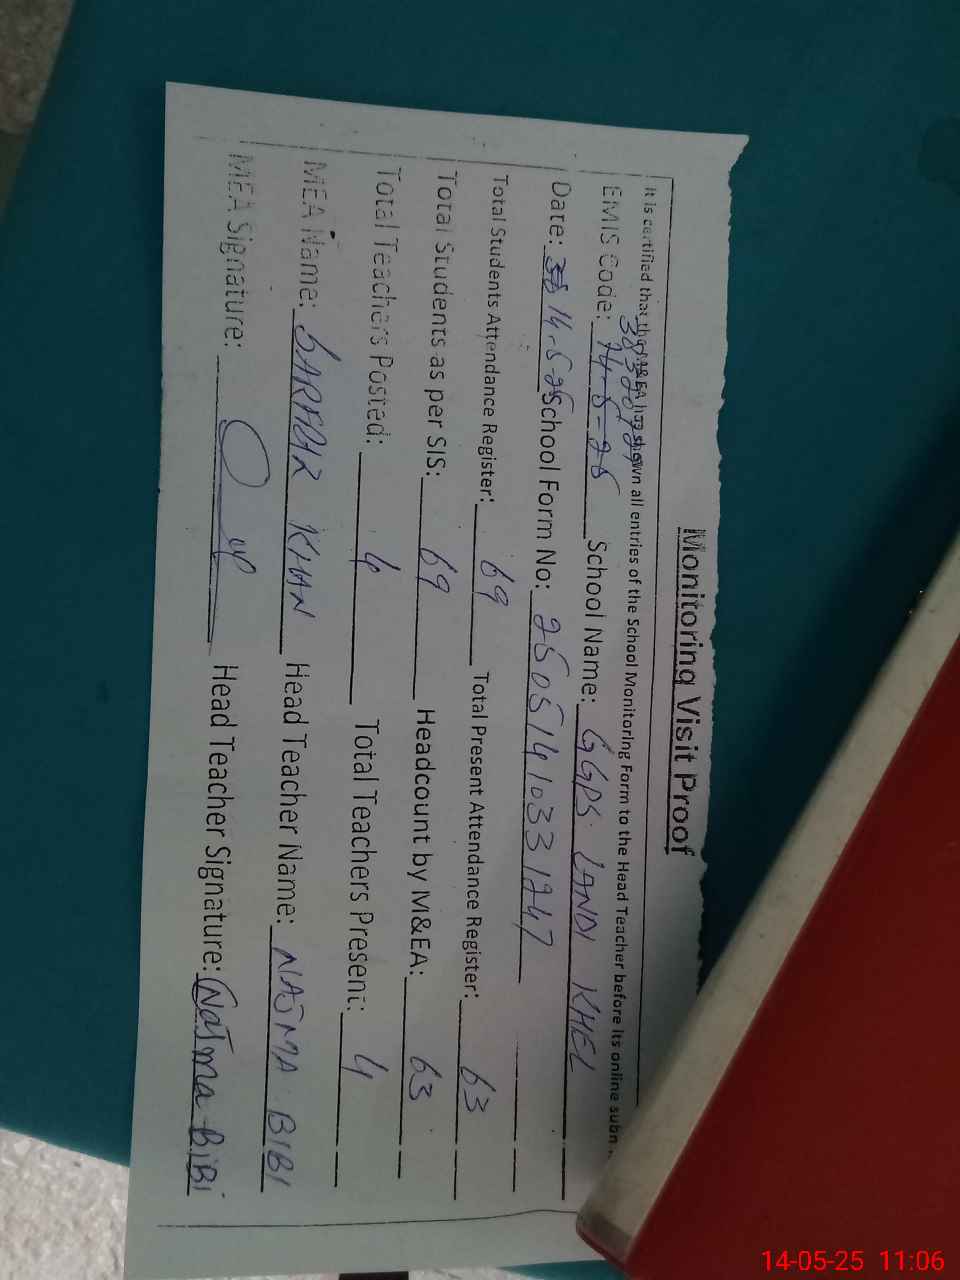 Monitoring Visit Proof
It is certified that the M&EA has shown all entries of the School Monitoring Form to the Head Teacher before its online
EMIS Code: 14-5-25 School Name: GGPS LANDI KHEL
Date: 14-5-25 School Form No: 25051410331247
Total Students Attendance Register: 69 Total Present Attendance Register: 63
Total Students as per SIS: 69 Headcount by M&EA: 63
Total Teachers Posted: 4 Total Teachers Present: 4
MEA Name: KHAN Head Teacher Name: NAJMA BIBI
MEA Signature: Head Teacher Signature: Najma BiBi
14-05-25 11:06